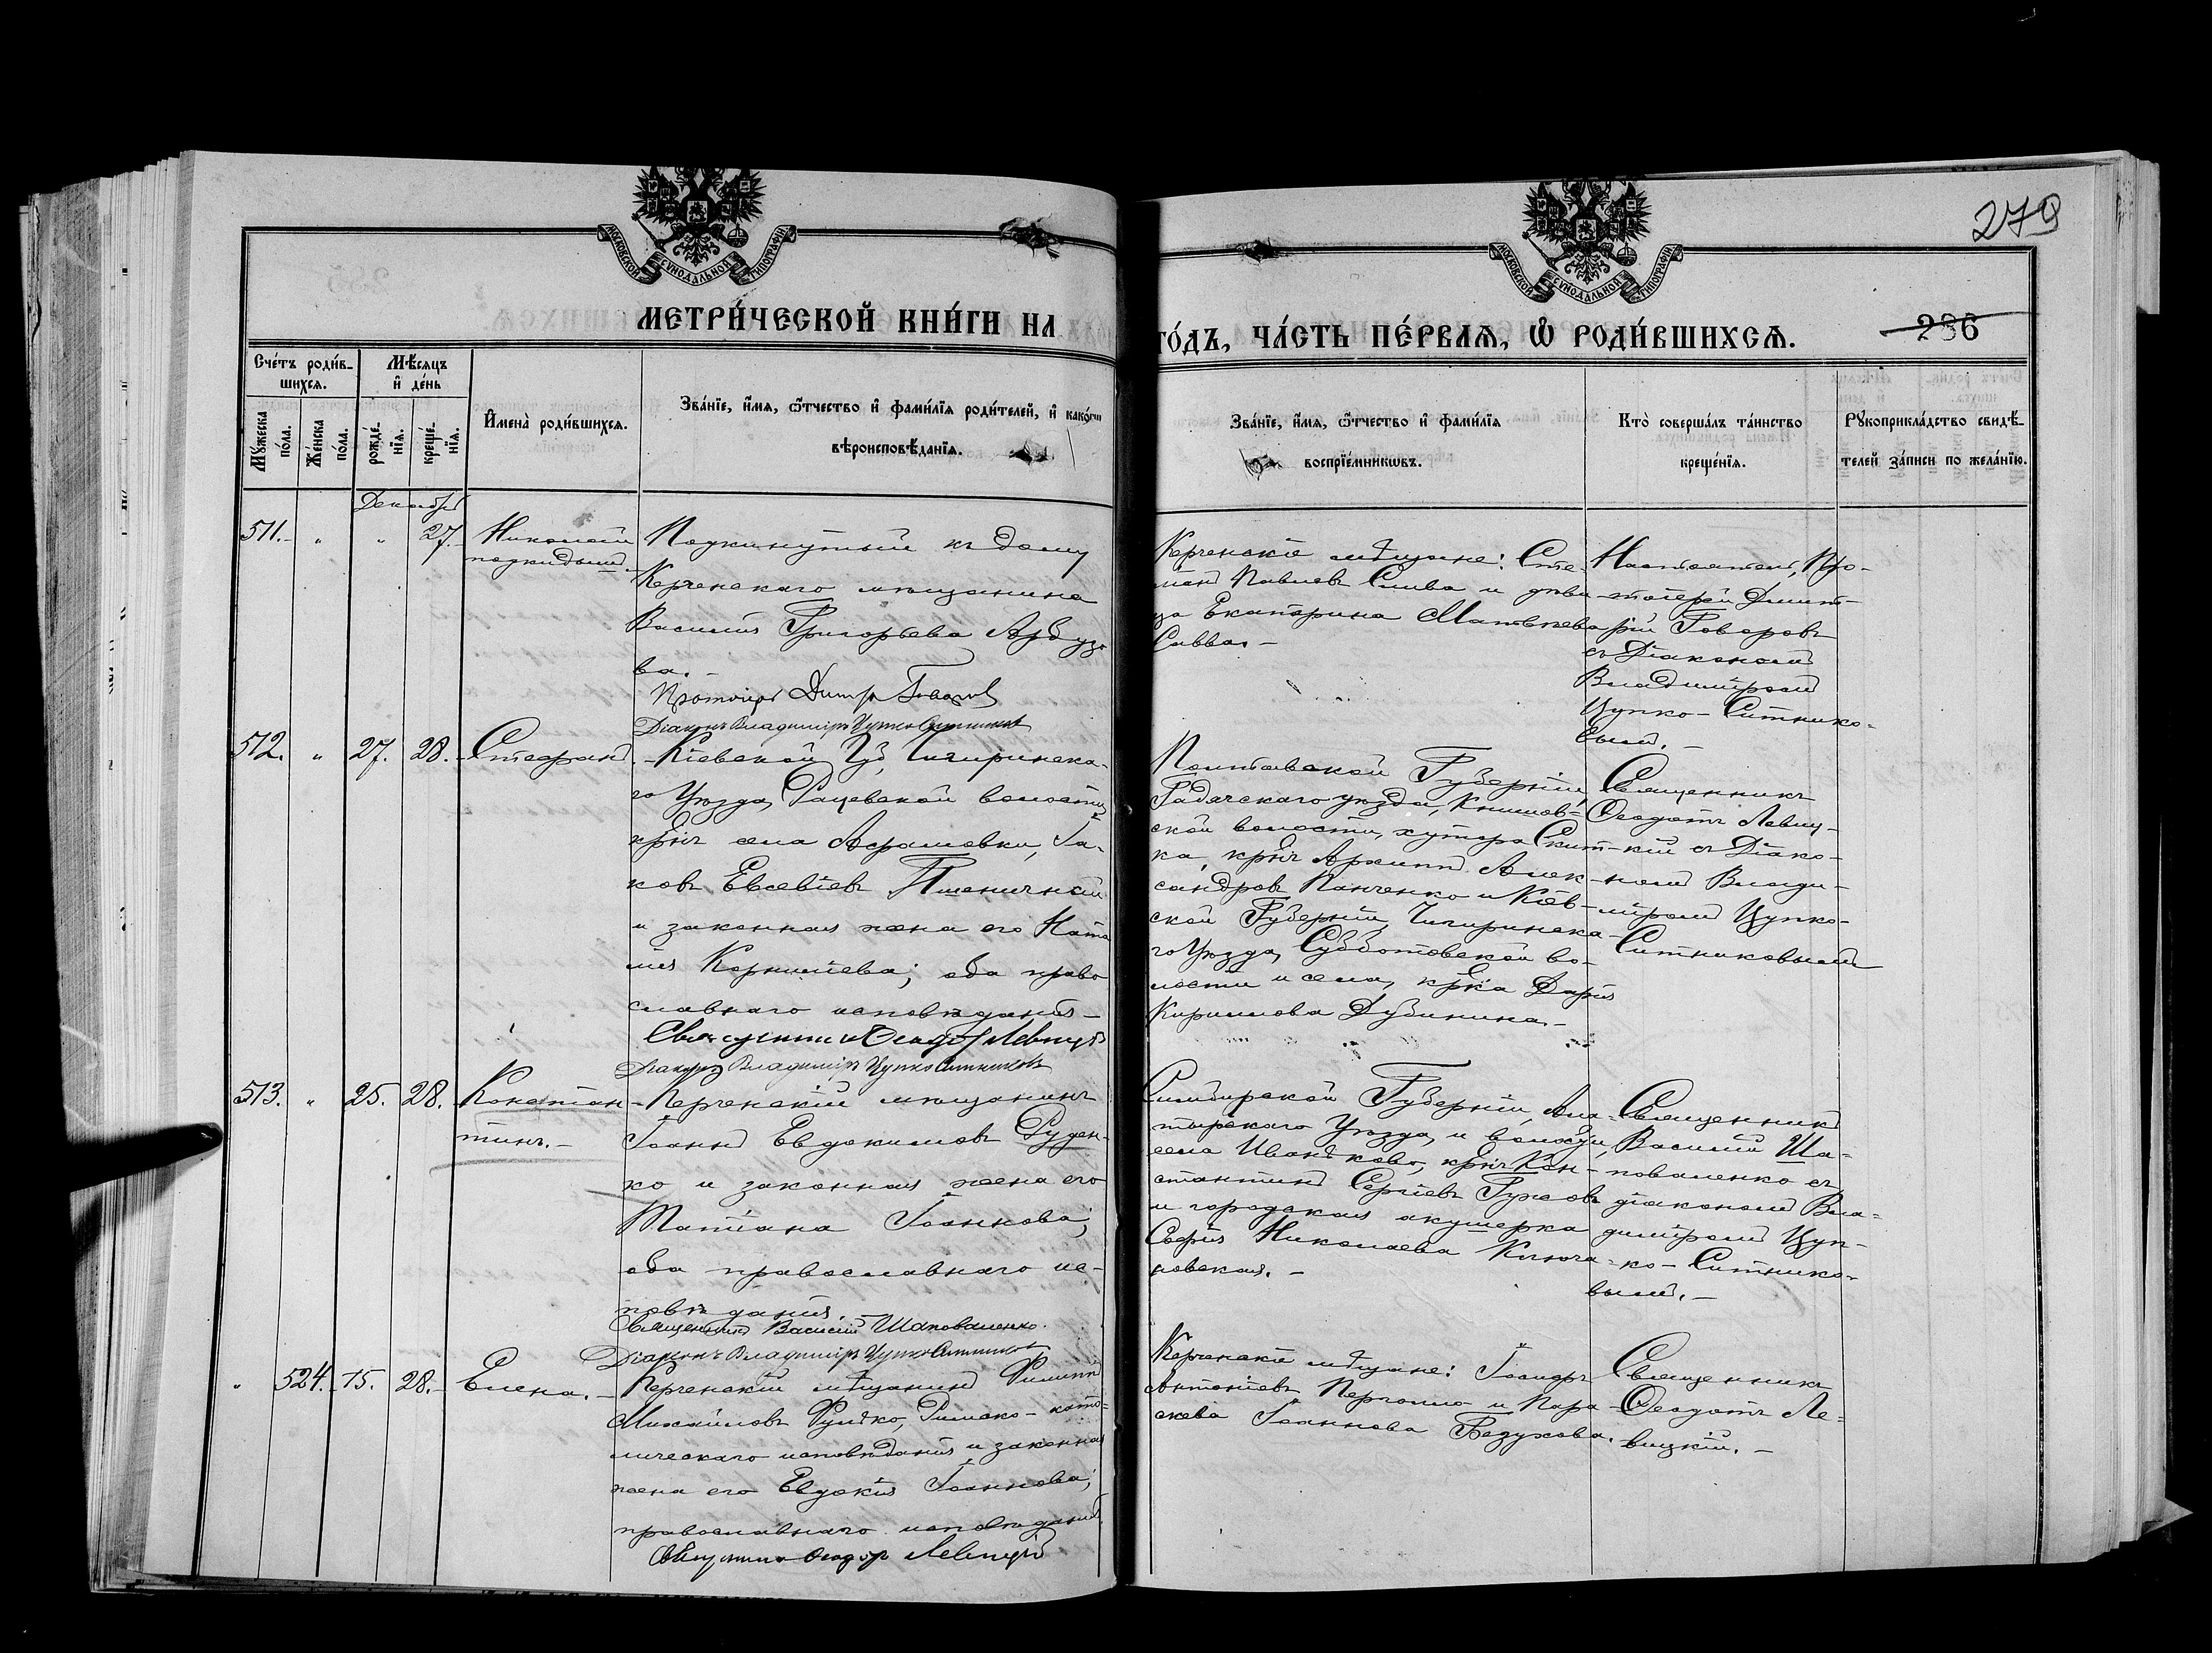 279
286
МОСКОВСКОЙ СѴНОДАЛЬНОЙ ТИПОГРАФІИ
МЕТРИ́ЧЕСКОЙ КНИ́ГИ НА
МОСКОВСКОЙ СѴНОДАЛЬНОЙ ТИПОГРАФІИ
ГО́ДЪ, ЧА́СТЬ ПЕ́РВАѦ, Ѡ҆ РОДИ́ВШИХСѦ.
Сче́тъ роди́в-
шихсѧ.
Мꙋ́жеска
по́ла.
Же́нска
по́ла.
Мѣ́сѧцъ
и҆ де́нь
рожде́-
нїѧ.
креще́-
нїѧ.
И҆мена̀ роди́вшихсѧ.
Зва́нїе, и҆́мѧ, ѻ҆́тчество и҆ фами́лїѧ роди́телей, и҆ како́гѡ
вѣроисповѣ́данїѧ.
Зва́нїе, и҆́мѧ, ѻ҆́тчество и҆ фами́лїѧ
воспрїе́мникѡвъ.
Кто̀ соверша́лъ та́инство
креще́нїѧ.
Рꙋкоприкла́дство свидѣ́-
телей за́писи по жела́нїю.
Декабрь
511.
"
"
27.
Николай
подкидыш.
Подкинутый къ дому
Керченскаго мѣщанина
Василія Григорьева Арбузо
ва.
Протоіерей Димитр
Діаконъ Владиміръ Цупко Ситников
Керченскіе мѣщане: Сте-
фан Павлов Слива и дѣви-
ца Екатерина Матвѣева
Савва.
Настоятель, Про-
тоіерей Димит-
рій Говоров
съ Діаконом
Владиміром
Цупко-Ситнико-
вым.
512.
"
27.
28.
Стефан.
Кіевской Губ, Чигиринска-
го Уѣзда, Рацевской волости,
крнъ села Афрамовки, Іа-
ковъ Евсевіевъ Пшеничный
и законная жена его Ната
лія Корнилієва; оба право
славнаго исповѣданія
Священник Феодот Левицкій
Діаконъ Владиміръ Цупко Ситников
Полтавской Губерніи,
Гадячскаго уѣзда, Книшов-
ской волости, хутора Скит-
ка, крнъ Архипп Алек-
сандровъ Панченко и Кіев-
ской Губерніи, Чигиринска-
го Уѣзда, Субботовской во-
лости и села, крка Дарія
Кириллова Дубинина.
Священникъ
Феодотъ Левиц-
кій съ Діако-
ном Влади-
міром Цупко-
Ситниковым
513.
"
25.
28.
Констан-
тинъ.
Керченскій мѣщанинъ
Іоанн Евдокимовъ Руден-
ко и законная жена его
Татіана Іоаннова;
оба православнаго ис-
повѣданія.
Священник Василій Шаповаленко.
Діаконъ Владиміръ Цупко Ситников
Симбирской Губерніи, Ала-
тырскаго Уѣзда, и волости,
села Иваньково, крнъ Кон-
стантин Сергіевъ Гужов
и городская акушерка
Софія Николаева Ключа-
новская.
Священник
Василій Ша-
поваленко съ
діаконом Вла-
диміром Цуп-
ко-Ситнико-
вым.
"
524.
15.
28.
Елена.
Керченскій мѣщанин Филипп
Михайловъ Рудко, Римско-като-
лическаго исповѣданія и законная
жена его Евдокія Іоаннова;
православнаго исповѣданія.
Священник Феодот Левицкій
Керченскіе мѣщане:
Антоніевъ и Пара-
скева Іоаннова Бедухова.
Священникъ
Феодотъ Ле-
вицкій.